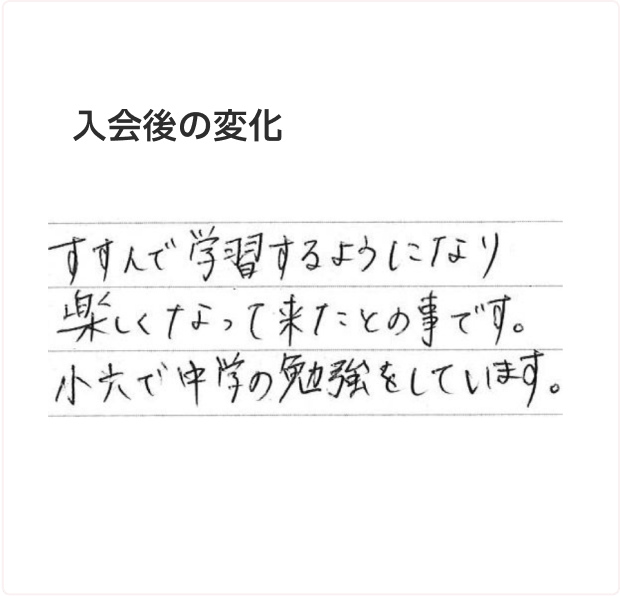 入会後の変化
すすんで学習するようになり
楽しくなって来たとの事です。
小六で中学の勉強をしています。